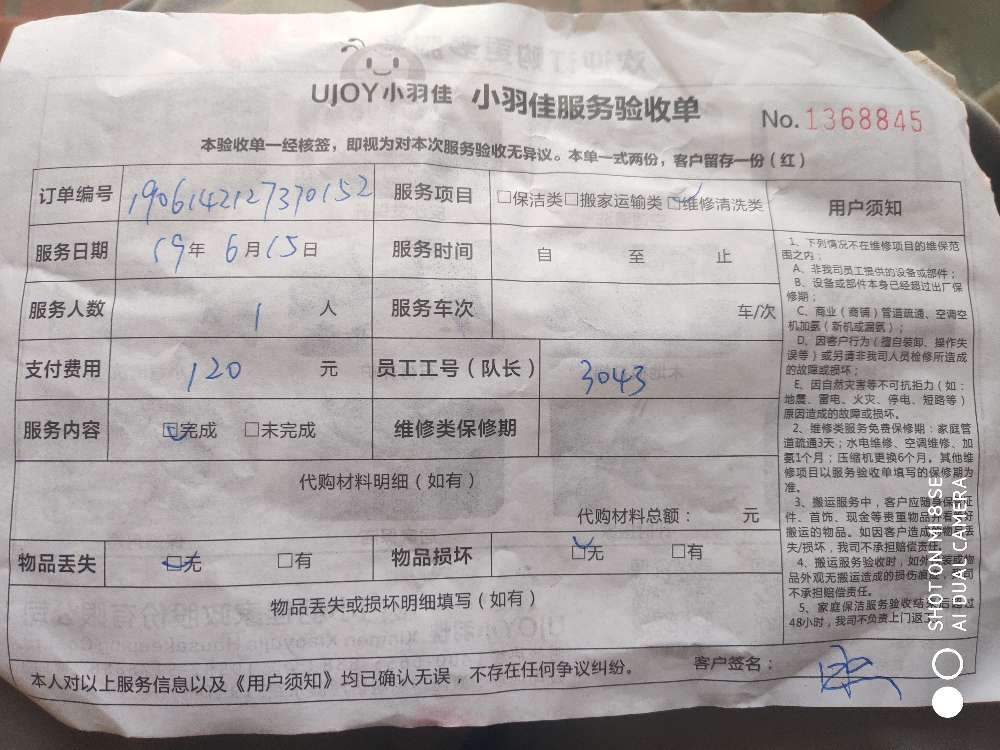 UJOY小羽佳 小羽佳服务验收单
No.1368845
本验收单一经核签，即视为对本次服务验收无异议。本单一式两份，客户留存一份（红）
订单编号 1906142127370152 服务项目 □保洁类□搬家运输类□维修清洗类
服务日期 19年 6月15日 服务时间 自 至 止
服务人数 1 人 服务车次 车/次
支付费用 120 元 员工工号（队长） 3043
服务内容 □完成 □未完成 维修类保修期
代购材料明细（如有）
代购材料总额： 元
物品丢失 □无 □有 物品损坏 □无 □有
物品丢失或损坏明细填写（如有）
本人对以上服务信息以及《用户须知》均已确认无误，不存在任何争议纠纷。 客户签名：
用户须知
1、下列情况不在维修项目的维保范
围之内：
A、非我司员工提供的设备或部件；
B、设备或部件本身已经超过出厂保
修期；
C、商业（商铺）管道疏通、空调空
机加氨（新机或漏氨）；
D、因客户行为（擅自装卸、操作失
误等）或另请非我司人员检修所造成
的故障或损坏；
E、因自然灾害等不可抗拒力（如：
地震、雷电、火灾、停电、短路等）
原因造成的故障或损坏。
2、维修类服务免费保修期：家庭管
道疏通3天；水电维修、空调维修、加
氨1个月；压缩机更换6个月。其他维
修项目以服务验收单填写的保修期为
准。
3、搬运服务中，客户应随身保
件、首饰、现金等贵重物品并看
搬运的物品。如因客户造成
失/损坏，我司不承担赔偿责任。
4、搬运服务验收时，如外
品外观无搬运造成的损伤痕
不承担赔偿责任。
5、家庭保洁服务验收结束后超过
48小时，我司不负责上门返
SHOT ON MI 8 SE
AI DUAL CAMERA